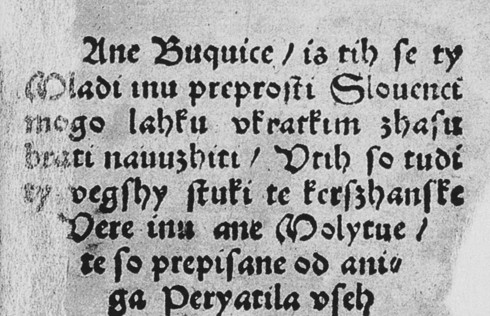 Ane Buquice / is tih se ty
Mladi inu preprosti Slouenci
mogo lahku vkratkim zhasu
brati nauuzhiti / Vtih so tudi
ty vegshy stuki te kerszhanske
Vere inu ane Molytue /
te so prepisane od ani-
ga Peryatila vseh